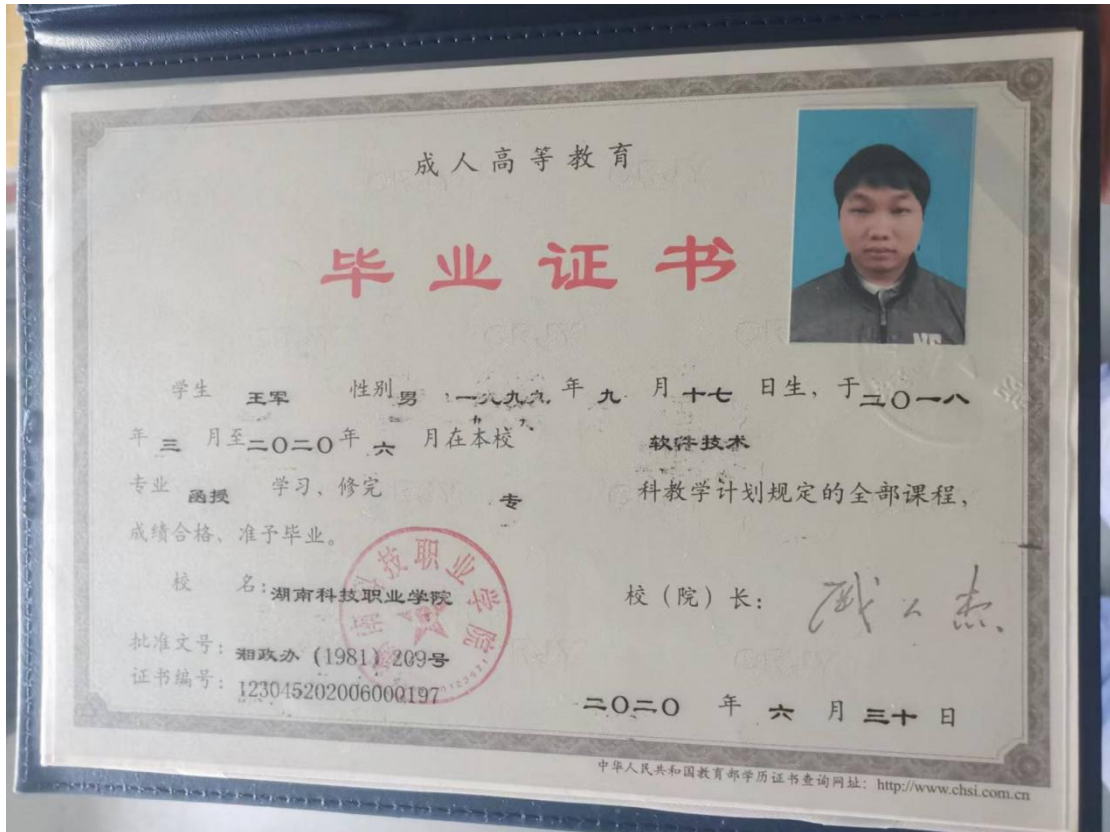 成人高等教育
毕业证书
学生 王军 性别 男，一九九六年九月十七日生，于二〇一八
年三月至二〇二〇年六月在本校 软件技术
专业 函授 学习、修完 专 科教学计划规定的全部课程，
成绩合格、准予毕业。
校 名：湖南科技职业学院 校（院）长：
批准文号：湘政办（1981）209号
证书编号：123045202006000197
二〇二〇年六月三十日
中华人民共和国教育部学历证书查询网址：http://www.chsi.com.cn